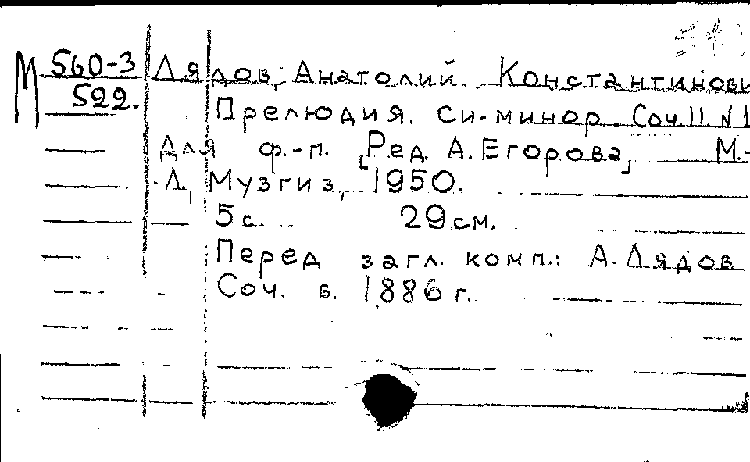 М 560-3 Лядов, Анатолий Константинови
522. Прелюдия. Си-минор. Соч. 11 № 1
для ф.-п. [Ред. А. Егорова] М.-
Л, Музгиз, 1950.
5 с. 29 см.
Перед загл. комп.: А. Лядов
Соч. в. 1886 г.